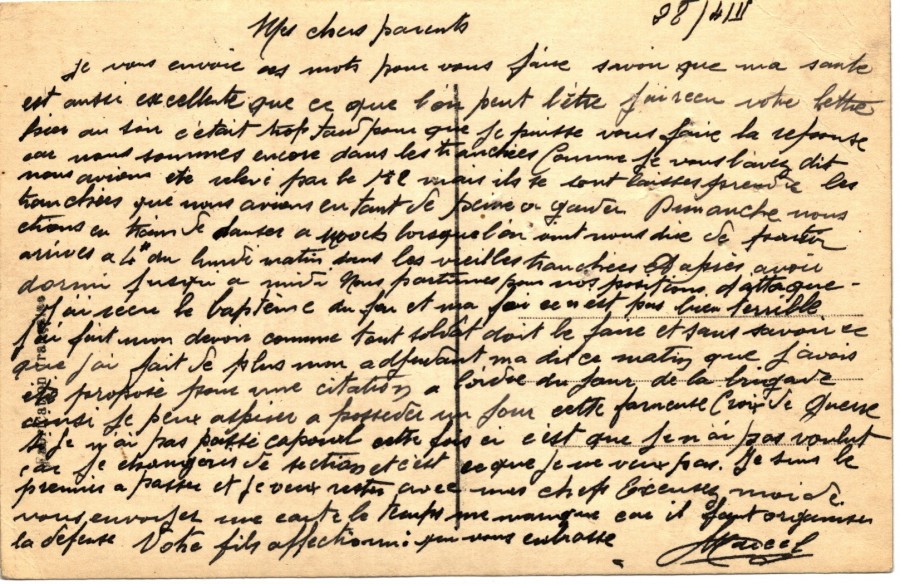 Mes chers parents
Je vous envoie ces mots pour vous faire savoir que ma sante
est aussi excellente que ce que l'on peut l'être J'ai recu votre lettre
hier au soir c'était trop tard pour que je puisse vous faire la reponse
car nous sommes encore dans les tranchées Comme je vous l'avez dit
nous avions été relevé par le mais ils se sont laissés prendre les
tranchées que nous avions eu tant de peine a garder Dimanche nous
etions en train de danser a lorsque l'on vint nous dire de partir
arrivés a 4h du lundi matin dans les vieilles tranchées Et après avoir
dormi jusqu'a midi Nous partimes pour nos positions d'attaque -
J'ai recu le baptême du feu et ma foi ce n'est pas bien terrible
J'ai fait mon devoir comme tout soldat doit le faire et sans savoir ce
que j'ai fait de plus mon adjudant ma dit ce matin que j'avais
été proposé pour une citation a l'ordre du jour de la brigade
ainsi je peux aspirer a posseder un jour cette fameuse Croix de Guerre
Si je n'ai pas passé caporal cette fois ci c'est que je n'ai pas voulut
car je changerais de section et c'est ce que je ne veux pas. Je suis le
premier a passer et je veux rester avec mes chefs Excusez moi de
vous envoyer une carte le temps me manque car il faut organiser
la défense Votre fils affectionné qui vous embrasse
Marcel